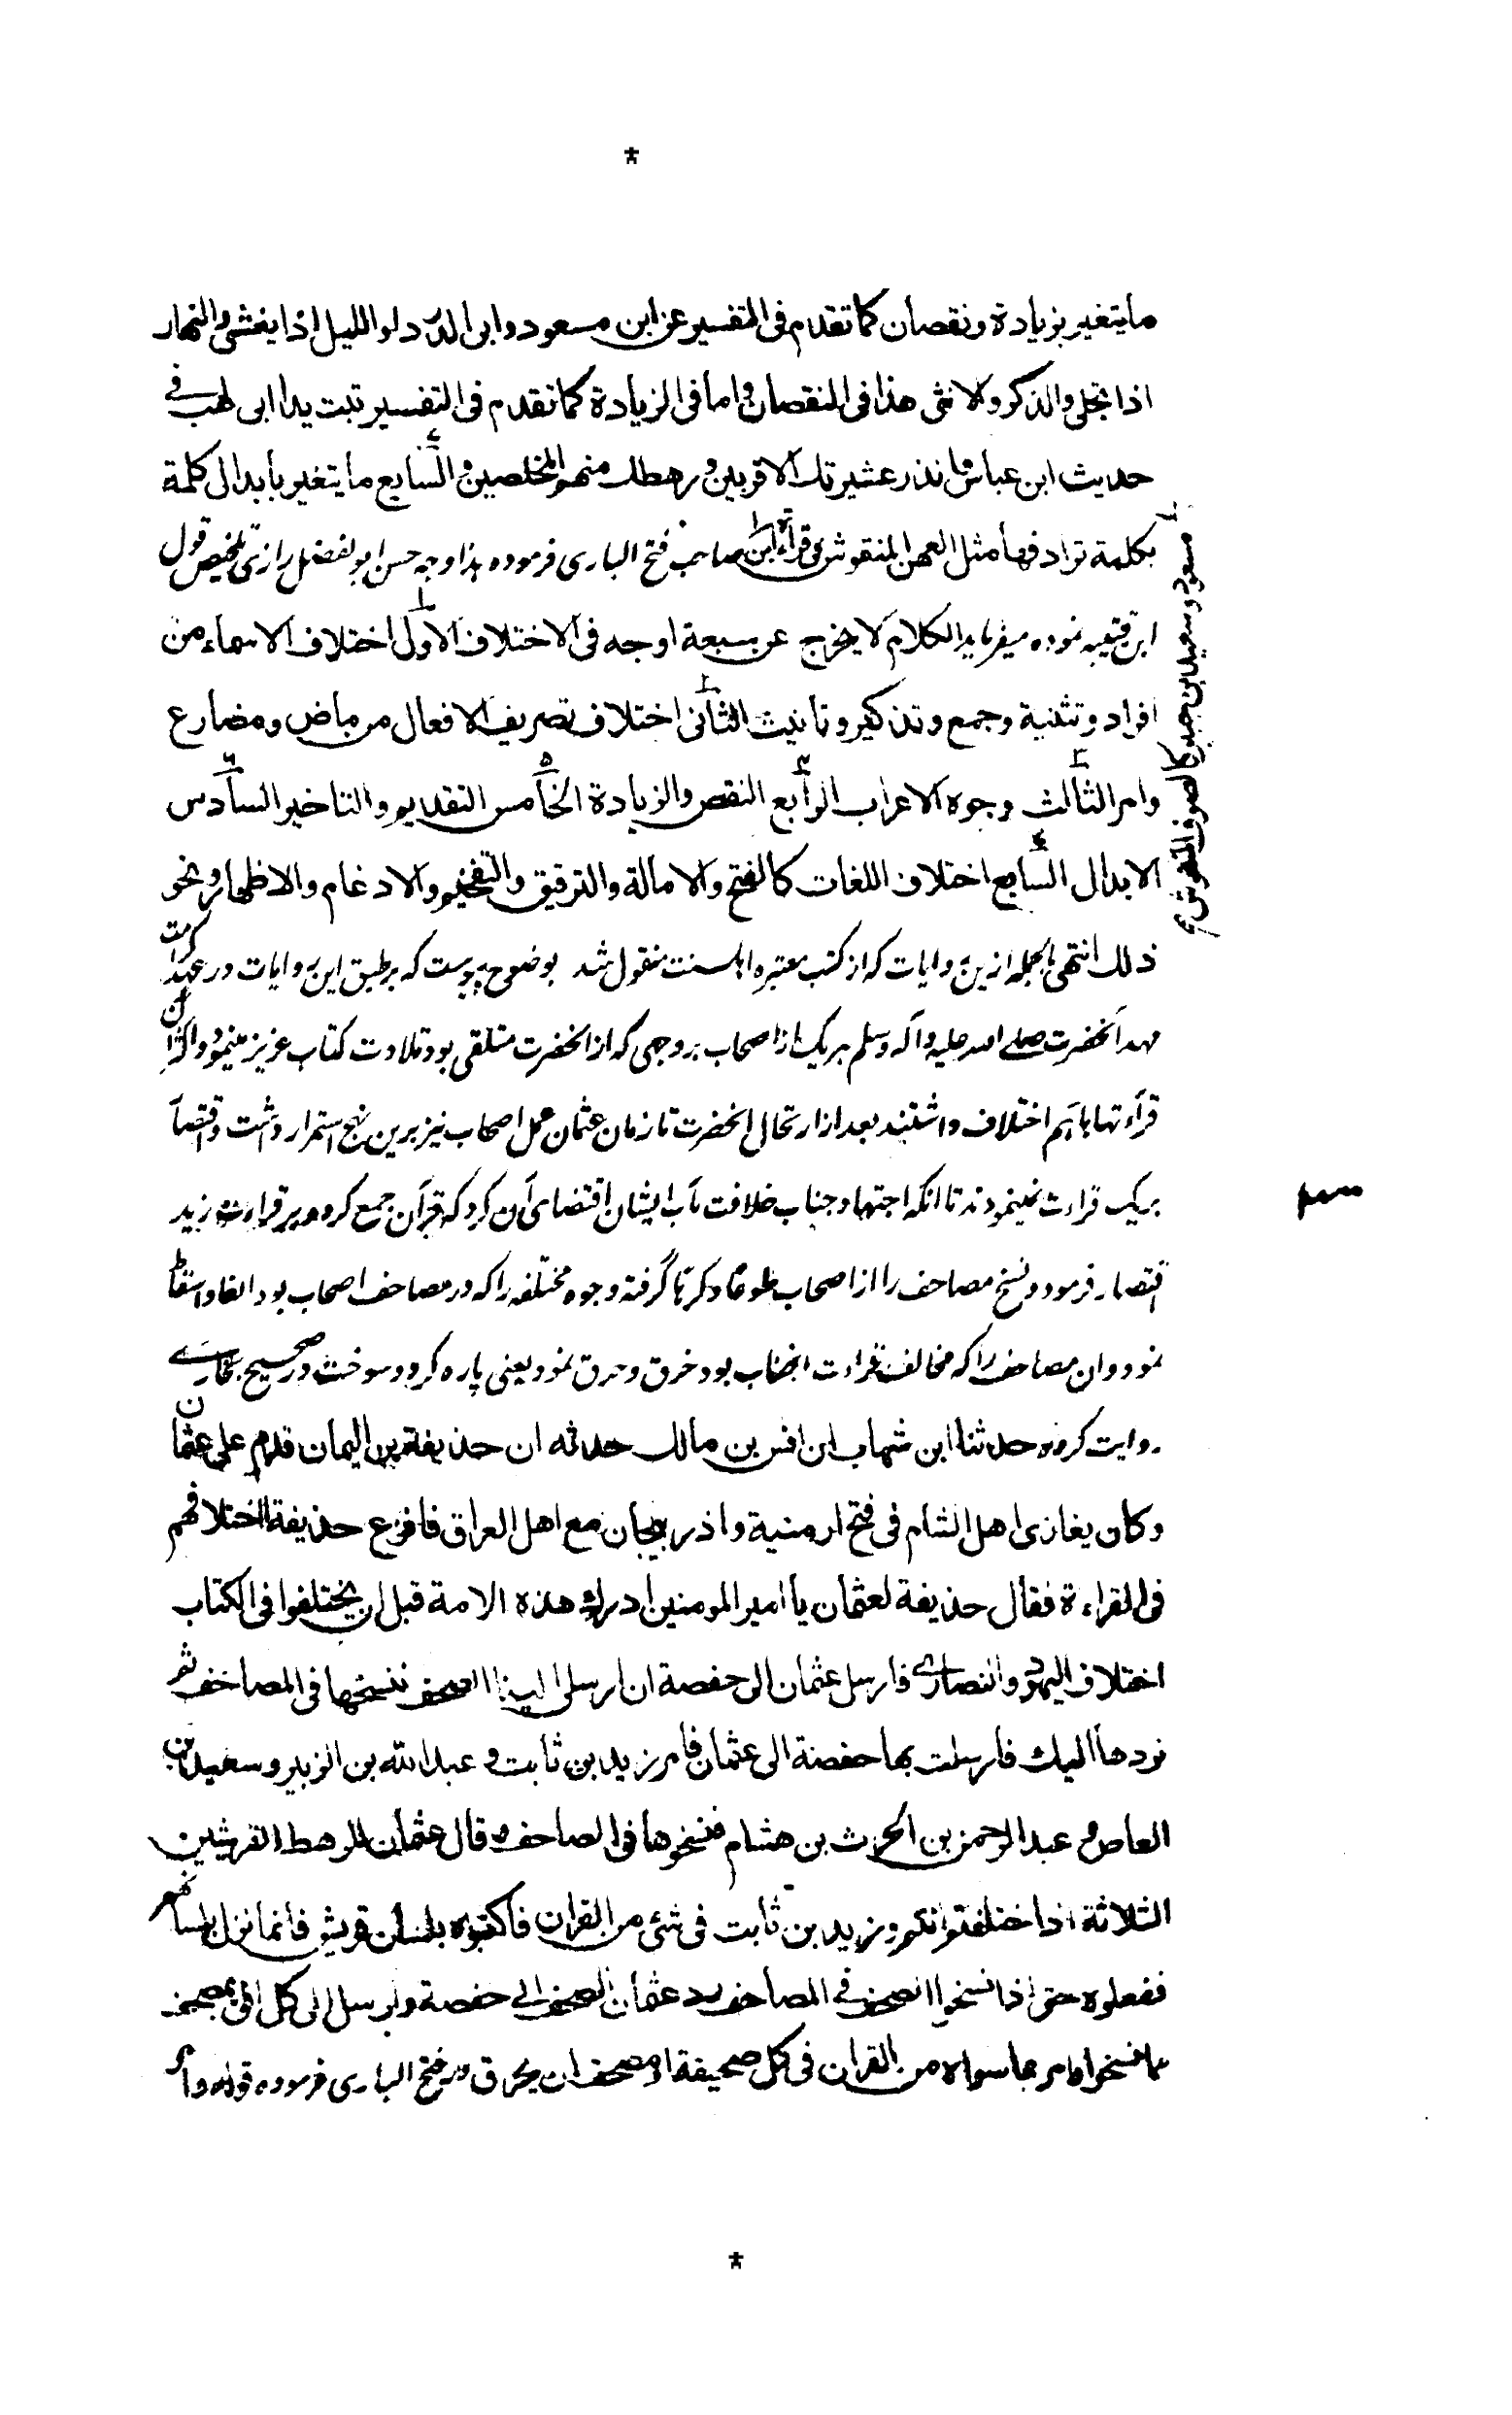 ما يتغير بزيادة و نقصان كما تقدم فى التفسير عن ابن مسعود و ابى الدرداء و الليل اذا يغشى والنهار
اذا تجلى والذكر و الانثى هذا فى النقصان و اما فى الزيادة كما تقدم فى التفسير تبت يدا ابى لهب فے
حديث ابن عباس و انذر عشيرتك الاقربين و رهطك منهم المخلصين و السابع ما يتغير بابدال كلمة
بكلمة ترادفها مثل العهن المنفوش فى قراءة ابن صاحب فتح البارى فرموده هذا وجه حسن ابو الفضل رازى تلخيص قول
مسعود و سعيد ابن جبير كالصوف المنفوش
ابن قتيبه نموده ميفرمايد الكلام لا يخرج عن سبعة اوجه فى الاختلاف الاول اختلاف الاسماء من
افراد و تثنية و جمع و تذكير و تانيث الثانى اختلاف تصريف الافعال من ماض و مضارع
و امر الثالث وجوه الاعراب الرابع النقص والزيادة الخامس التقديم و التاخير السادس
الابدال السابع اختلاف اللغات كالفتح و الامالة والترقيق والتفخيم و الادغام و الاظهار و نحو
ذلك انتهى بالجمله ازين روايات كه از كتب معتبره اهلسنت منقول شد بوضوح پيوست كه بر طبق اين روايات در عهد كرامت
مهد آنحضرت صلے الله عليه و آله و سلم هر يك از اصحاب بروجهى كه از آنحضرت متلقى بود تلاوت كتاب عزيز مينمود و اكثر آن
قراءتها باهم اختلاف داشتند بعد از ارتحال آنحضرت تا زمان عثمان عمل اصحاب نيز برين نهج استمرار داشت و اقتصار
بر يك قراءت نمينمودند تا آنكه اجتهاد جناب خلافت مآب ايشان اقتضاى آن كرد كه قرآن جمع كرده بر قراءت زيد
اقتصار فرمود و نسخ مصاحف را از اصحاب طوعا و كرها گرفته وجوه مختلفه را كه در مصاحف اصحاب بود القا و اسقاط
نمود و ان مصاحف را كه مخالف قراءت آنجناب بود خرق و حرق نمود يعنى پاره كرد و سوخت در صحيح بخارے
روايت كرده حدثنا ابن شهاب ان انس بن مالك حدثه ان حذيفة بن اليمان قدم على عثمان
و كان يغازى اهل الشام فى فتح ارمنية و اذربيجان مع اهل العراق فافزع حذيفة اختلافهم
فى القراءة فقال حذيفة لعثمان يا امير المومنين ادرك هذه الامة قبل ان يختلفوا فى الكتاب
اختلاف اليهود و النصارے فارسل عثمان الى حفصة ان ارسلى الينا الصحف ننسخها فى المصاحف ثم
نردها اليك فارسلت بها حفصة الى عثمان فامر زيد بن ثابت و عبد الله بن الزبير و سعيد بن
العاص و عبد الرحمن بن الحرث بن هشام فنسخوها فى المصاحف و قال عثمان للرهط القرشيين
الثلاثة اذا اختلفتم انتم و زيد بن ثابت فى شئ من القران فاكتبوه بلسان قريش فانما نزل بلسانهم
ففعلوه حتى اذا نسخوا الصحف فے المصاحف رد عثمان الصحف الے حفصة و ارسل الى كل افق بمصحف
مما نسخوا و امر بما سواه من القران فى كل صحيفة او مصحف ان يحرق در فتح البارى فرموده قوله و امر